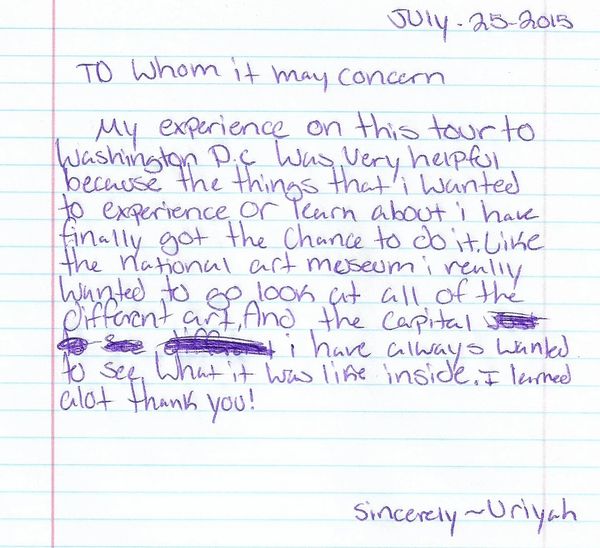 JUly-25-2015
TO Whom it may concern
My experience on this tour to
Washington D.C was very helpful
because the things that i wanted
to experience or learn about i have
finally got the chance to do it. Like
the national art meseum i really
wanted to go look at all of the
different art. And the capital
i have always wanted
to see what it was like inside. I learned
alot thank you!
Sincerely ~ Uriyah